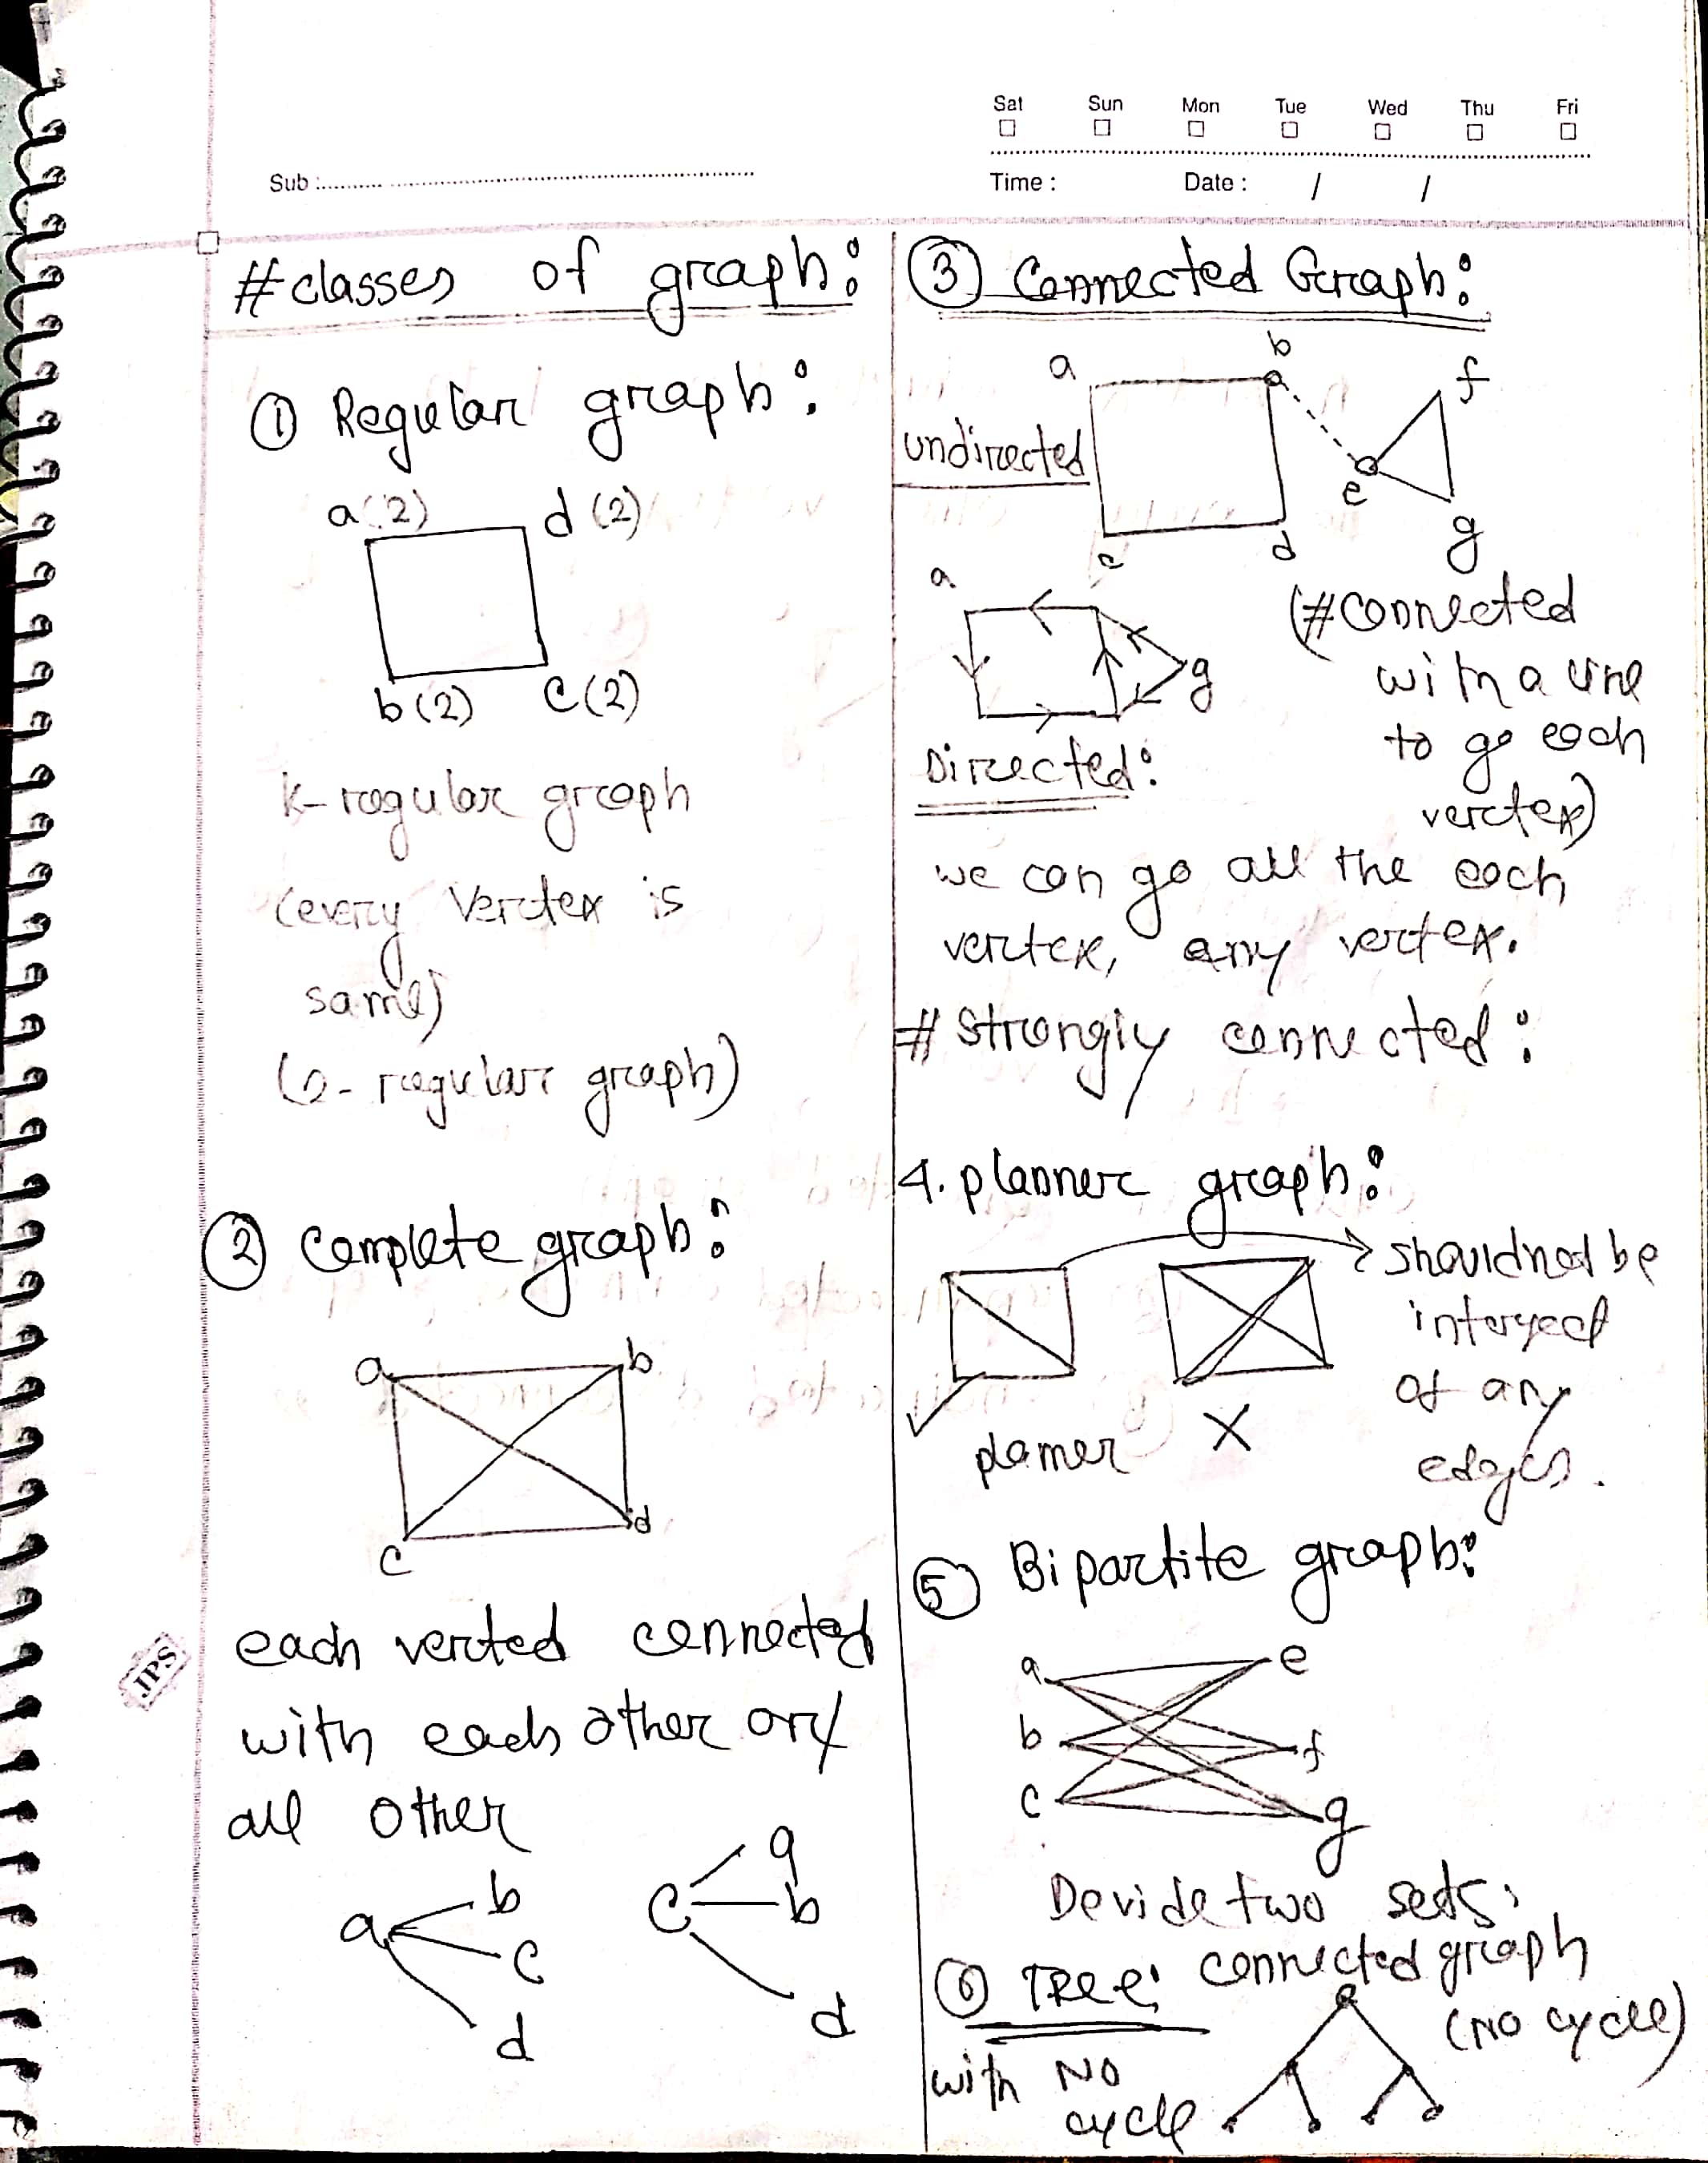 Sat Sun Mon Tue Wed Thu Fri
Sub :
Time : Date : / /
#classes of graph:
① Regular graph:
a(2) d(2)
b(2) c(2)
K-regular graph
(every vertex is
same)
(2-regular graph)
② Complete graph:
a b
c d
each verted connected
with each other or/
all other
a b c d
c a b d
JPS
③ Connected Graph:
a b f
undirected
e
c d g
a
g
(#connected
with a line
to go each
vertex)
Directed:
we can go all the each
vertex, any vertex.
# Strongly connected:
4. planner graph:
should not be
intersect
of any
edges.
planer X
⑤ Bipartite graph:
a e
b f
c g
Devide two sets.
⑥ TRee: connected graph
(NO cycle)
with NO
cycle